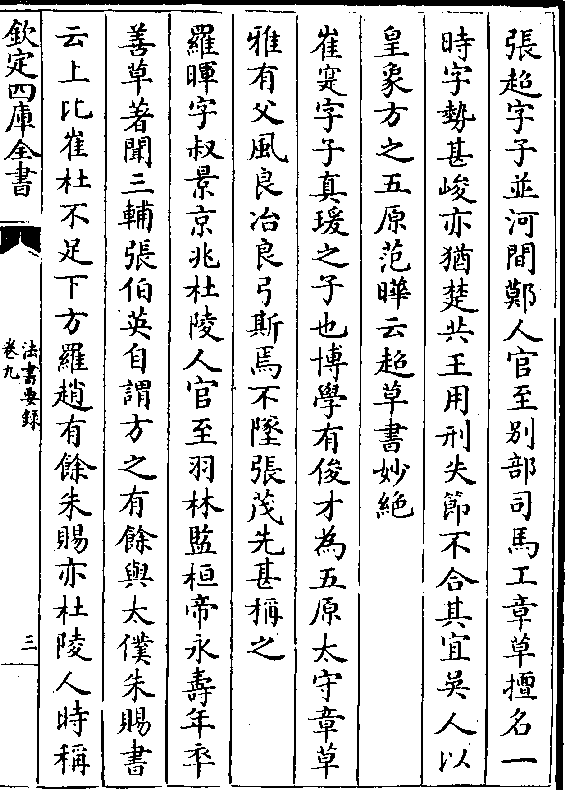 張超字子並河間鄭人官至别部司馬工章草擅名一
時字勢甚峻亦猶楚共王用刑失節不合其宜吳人以
皇象方之五原范曄云超草書妙絶
崔寔字子真瑗之子也博學有俊才為五原太守章草
雅有父風良冶良弓斯焉不墜張茂先甚稱之
羅暉字叔景京兆杜陵人官至羽林監桓帝永壽年卒
善草著聞三輔張伯英自謂方之有餘與太僕朱賜書
云上比崔杜不足下方羅趙有餘朱賜亦杜陵人時稱
欽定四庫全書
法書要録
卷九
三